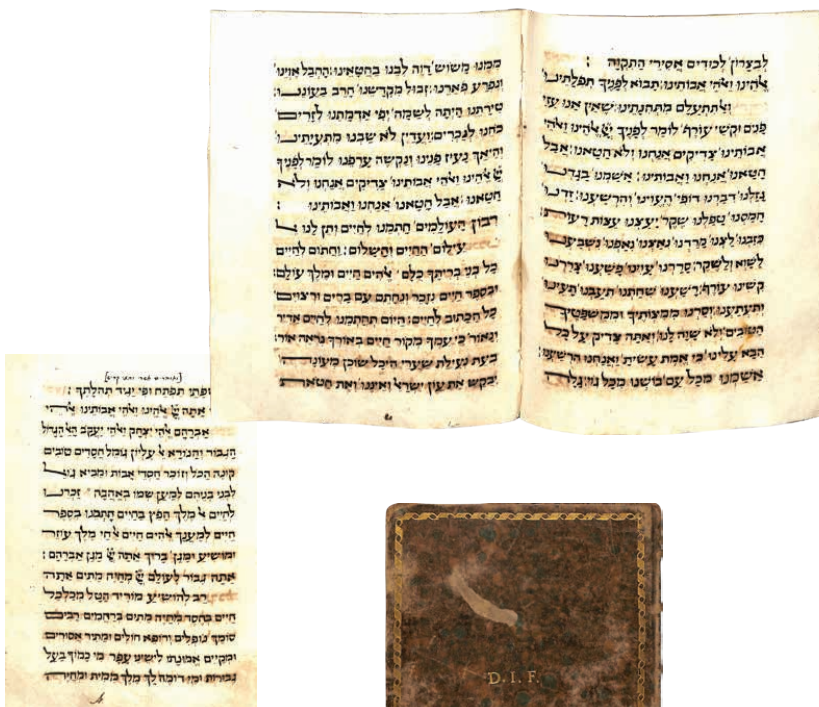 לבצרון לכודים אסירי התקוה :
אלהינו ואלהי אבותינו תבוא לפניך תפלתינו
ואל תתעלם מתחנתינו שאין אנו עזי
פנים וקשי עורף לומר לפניך יי אלהינו ואלהי
אבותינו צדיקים אנחנו ולא חטאנו אבל
חטאנו אנחנו ואבותינו אשמנו בגדנו
גזלנו דברנו דופי העוינו והרשענו זדנו
חמסנו טפלנו שקר יעצנו עצות רעות
כזבנו לצנו מרדנו נאצנו נאפנו נשבענו
לשוא ולשקר סררנו עוינו פשענו צררנו
קשינו עורף רשענו שחתנו תעבנו תעינו
ותעתענו וסרנו ממצותיך וממשפטיך
הטובים ולא שוה לנו ואתה צדיק על כל
הבא עלינו כי אמת עשית ואנחנו הרשענו
אשמנו מכל עם בושנו מכל גוי גלה
ממנו משוש דוה לבנו בחטאינו החבל אוינו
ונפרע פארנו זבול מקדשנו חרב בעונינו
טירתנו היתה לשמה יפי אדמתנו לזרים
כחנו לנכרים ועדין לא שבנו מתעיתינו
והיאך נעיז פנינו ונקשה ערפנו לומר לפניך
יי אלהינו ואלהי אבותינו צדיקים אנחנו ולא
חטאנו אבל חטאנו אנחנו ואבותינו :
רבון העולמים חתמנו לחיים ותן לנו
עילום החיים והשלום וחתום לחיים
כל בני בריתך כלם אלהים חיים ומלך עולם
ובספר חיים נזכר ונחתם עם ברים ורצוים
כל הכתוב לחיים היום תחתמנו לחיים אדיר
ונאור כי עמך מקור חיים באורך נראה אור
בעת נעילת שערי היכל שוכן מעונה
יבקש את עון ישראל ואיננו ואת חטאת
שפתי תפתח ופי יגיד תהלתך :
אתה יי אלהינו ואלהי אבותינו אלהי
אברהם אלהי יצחק ואלהי יעקב האל הגדול
הגבור והנורא אל עליון גומל חסדים טובים
קונה הכל וזוכר חסדי אבות ומביא גואל
לבני בניהם למען שמו באהבה זכרנו
לחיים אל מלך חפץ בחיים כתבנו בספר
חיים למענך אלהים חיים אל חי מלך עוזר
ומושיע ומגן ברוך אתה יי מגן אברהם :
אתה גבור לעולם יי מחיה מתים אתה
רב להושיע מוריד הטל מכלכל
חיים בחסד מחיה מתים ברחמים רבים
סומך נופלים ורופא חולים ומתיר אסורים
ומקיים אמונתו לישני עפר מי כמוך בעל
גבורות ומי דומה לך מלך ממית ומחיה
D. I. F.